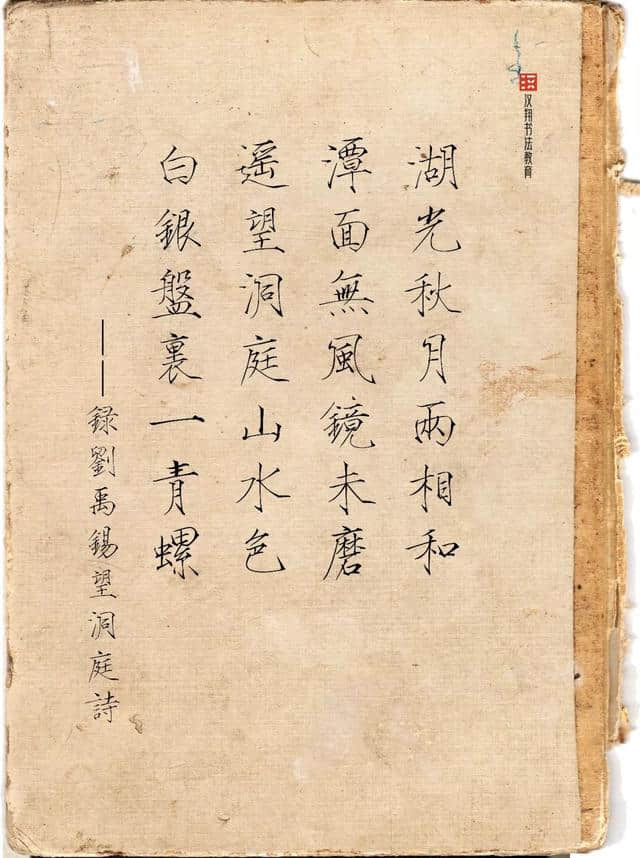 湖光秋月兩相和
潭面無風鏡未磨
遥望洞庭山水色
白銀盤裏一青螺
——録劉禹錫望洞庭詩
汉翔书法教育